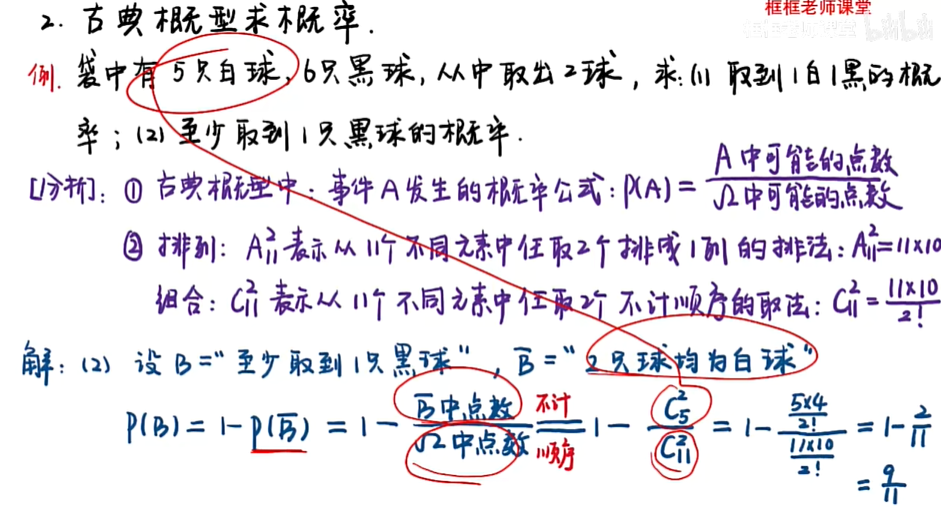 框框老师课堂
2. 古典概型求概率.
例. 袋中有5只白球, 6只黑球, 从中取出2球, 求: (1) 取到1白1黑的概
率; (2) 至少取到1只黑球的概率.
[分析]: ① 古典概型中: 事件A发生的概率公式: P(A) = A中可能的点数 / Ω中可能的点数
② 排列: A²₁₁表示从11个不同元素中任取2个排成1列的排法: A²₁₁=11×10
组合: C²₁₁表示从11个不同元素中任取2个不计顺序的取法: C²₁₁ = 11×10 / 2!
解: (2) 设B="至少取到1只黑球", B̅="2只球均为白球"
P(B) = 1-P(B̅) = 1 - B̅中点数 / Ω中点数 不计顺序 = 1 - C²₅ / C²₁₁ = 1 - (5×4 / 2!) / (11×10 / 2!) = 1 - 2/11
= 9/11